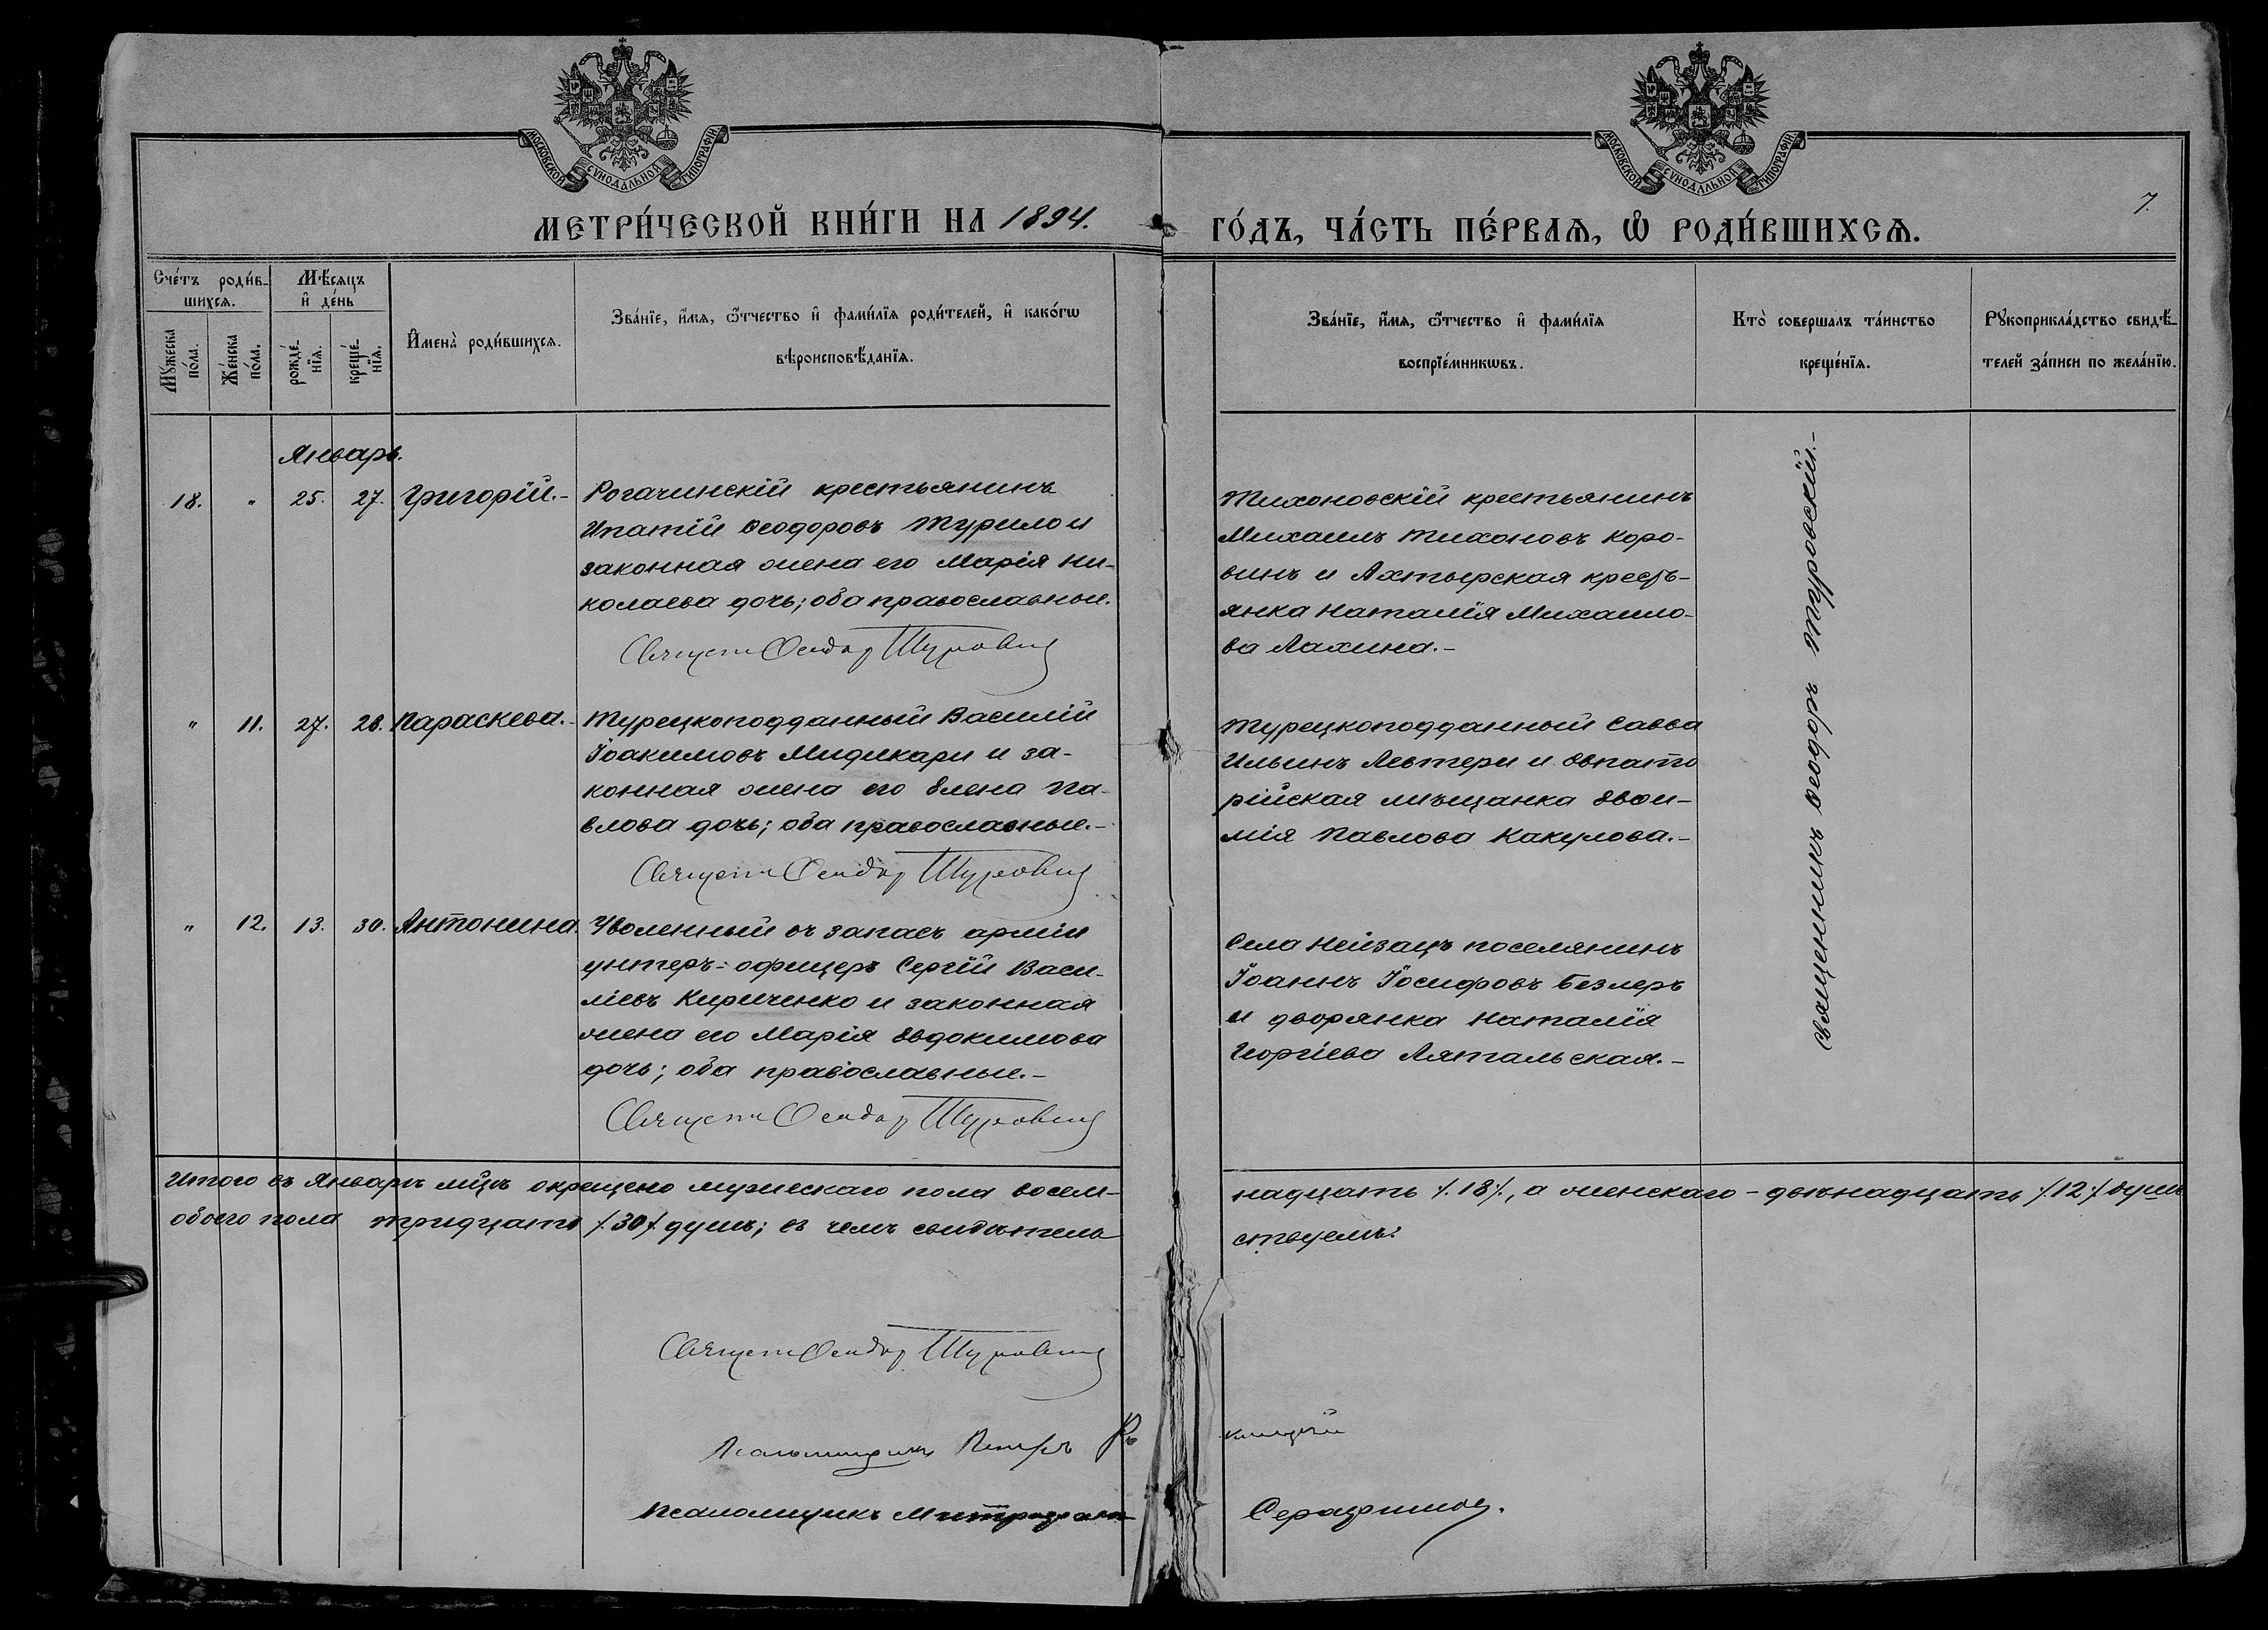 МОСКОВСКОЙ СѴНОДАЛЬНОЙ ТИПОГРАФІИ
МОСКОВСКОЙ СѴНОДАЛЬНОЙ ТИПОГРАФІИ
7.
МЕТРИ́ЧЕСКОЙ КНИ́ГИ НА 1894. ГО́ДЪ, ЧА́СТЬ ПЕ́РВАѦ, Ѡ҆ РОДИ́ВШИХСѦ.
Счéтъ роди́в-
шихсѧ.
Мꙋ́жеска
по́ла.
Же́нска
по́ла.
Мѣ́сѧцъ
и҆ де́нь
рожде́-
нїѧ.
креще́-
нїѧ.
И҆мена̀ роди́вшихсѧ.
Зва́нїе, и҆́мѧ, ѻ҆́тчество и҆ фами́лїѧ роди́телей, и҆ како́гѡ
вѣроисповѣ́данїѧ.
Зва́нїе, и҆́мѧ, ѻ҆́тчество и҆ фами́лїѧ
воспрїе́мникѡвъ.
Кто̀ соверша́лъ та́инство
креще́нїѧ.
Рꙋкоприкла́дство свидѣ́-
телей за́писи по жела́нїю.
Январь.
18. " 25. 27. Григорій.-
Рогачинскій крестьянинъ
Ипатій Ѳеодоровъ Турило и
законная жена его Марія Ни-
колаева дочь; оба православные.
Священ Ѳеодор Туровскій
Тихоновскій крестьянинъ
Михаилъ Тихоновъ Коро-
винъ и Ахтырская кресть-
янка Наталія Михаило-
ва Лахина.-
" 11. 27. 28. Параскева.-
Турецкоподданный Василій
Іоакимовъ Мидикари и за-
конная жена его Елена Па-
влова дочь; оба православные.-
Священ Ѳеодор Туровскій
Турецкоподданный Савва
Ильинъ Левтери и Евпато
рійская мѣщанка Евфи-
мія Павлова Какулова.-
" 12. 13. 30. Антонина.
Уволенный въ запасъ арміи
унтеръ-офицеръ Сергій Васи-
ліевъ Кириченко и законная
жена его Марія Евдокимова
дочь; оба православные.-
Священ Ѳеодор Туровскій
Села Нейзацъ поселянинъ
Іоаннъ Іосифовъ Безлеръ
и дворянка Наталія
Георгіева Лятальская.-
Священникъ Ѳеодоръ Туровскій.-
Итого въ Январѣ мцѣ окрещено мужескаго пола восем-
надцать /.18/., а женскаго - двѣнадцать /.12/. душъ
обоего пола тридцать /.30/. душъ; въ чемъ свидѣтель
ствуемъ:
Священ Ѳеодор Туровскій
Псаломщикъ Петръ
Псаломщикъ Митрофанъ Серафимов.